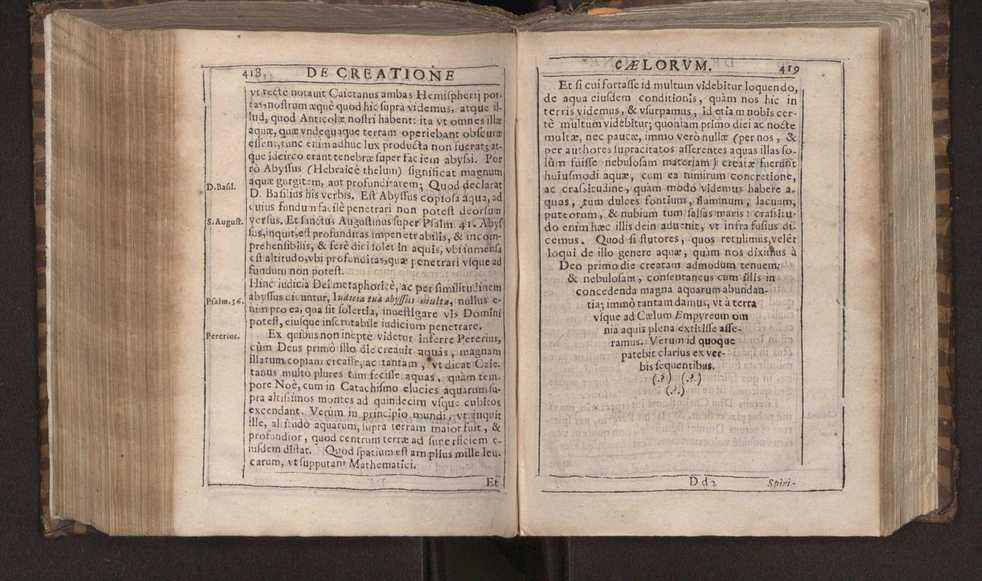 418 DE CREATIONE
vt recte notauit Caietanus ambas Hemispherij por
tas, nostrum æquè quod hic suprà videmus, atque il-
lud, quod Anticolæ nostri habent: ita vt omnes illæ
aquæ, quæ vndequaque terram operiebant obscuræ
essent, tunc enim adhuc lux producta non fuerat; at-
que idcirco erant tenebræ super faciem abyssi. Por
rò Abyssus (Hebraicè thelum) significat magnum
aquæ gurgitem, aut profunditatem; Quod declarat
D. Basil.
D. Basilius his verbis. Est Abyssus copiosa aqua, ad
cuius fundum facilè penetrari non potest deorsum
S. August.
versus. Et sanctus Augustinus super Psalm. 41. Abys
sus, inquit, est profunditas impenetrabilis, & incom-
prehensibilis, & ferè dici solet in aquis, vbi immensa
est altitudo, vbi profunditas, quæ penetrari vsque ad
fundum non potest.
Hinc iudicia Dei metaphoricè, ac per similitudinem
Psalm. 36.
abyssus dicuntur, Iudicia tua abyssus multa, nullus e-
nim pro ea, qua sit solertia, inuestigare vis Domini
potest, eiusque inscrutabile iudicium penetrare.
Pererius.
Ex quibus non ineptè videtur inferre Pererius,
cùm Deus primò illo die creauit aquas, magnam
illarum copiam creasse, ac tantam, vt dicat Caie-
tanus multo plures tum fecisse aquas, quàm tem-
pore Noè, cum in Catachismo elucies aquarum su-
pra altissimos montes ad quindecim vsque cubitos
excendant. Verùm in principio mundi, vt inquit
ille, altitudo aquarum, supra terram maior fuit, &
profundior, quod centrum terræ ad superficiem e-
iusdem distat. Quod spatium est amplius mille leu-
carum, vt supputant Mathematici.
Et
CÆLORVM. 419
Et si cui fortasse id multum videbitur loquendo,
de aqua eiusdem conditionis, quàm nos hic in
terris videmus, & vsurpamus, id etiam nobis cer-
tè multum videbitur; quoniam primo diei ac nocte
multæ, nec paucæ, immo verò nullæ (per nos, &
per authores supracitatos asserentes aquas illas so-
lùm fuisse nebulosam materiam) creatæ fuerunt
huiusmodi aquæ, cum ea nimirum concretione,
ac crassitudine, quàm modo videmus habere a-
quas, tum dulces fontium, fluminum, lacuum,
puteorum, & nubium tum salsas maris: crassitu-
do enim hæc illis dein aduenit, vt infra fusius di-
cemus. Quod si stutores, quos retulimus, velét
loqui de illo genere aquæ, quàm nos diximus à
Deo primo die creatam admodum tenuem,
& nebulosam, consentaneus cum illis in
concedenda magna aquarum abundan-
tia; immò tantam damus, vt à terra
vsque ad Cœlum Empyreum om
nia aquis plena extitisse asse-
ramus. Verum id quoque
patebit clarius ex ver-
bis sequentibus.
(.?.) (.?.)
(.?.)
Dd2 Spiri-